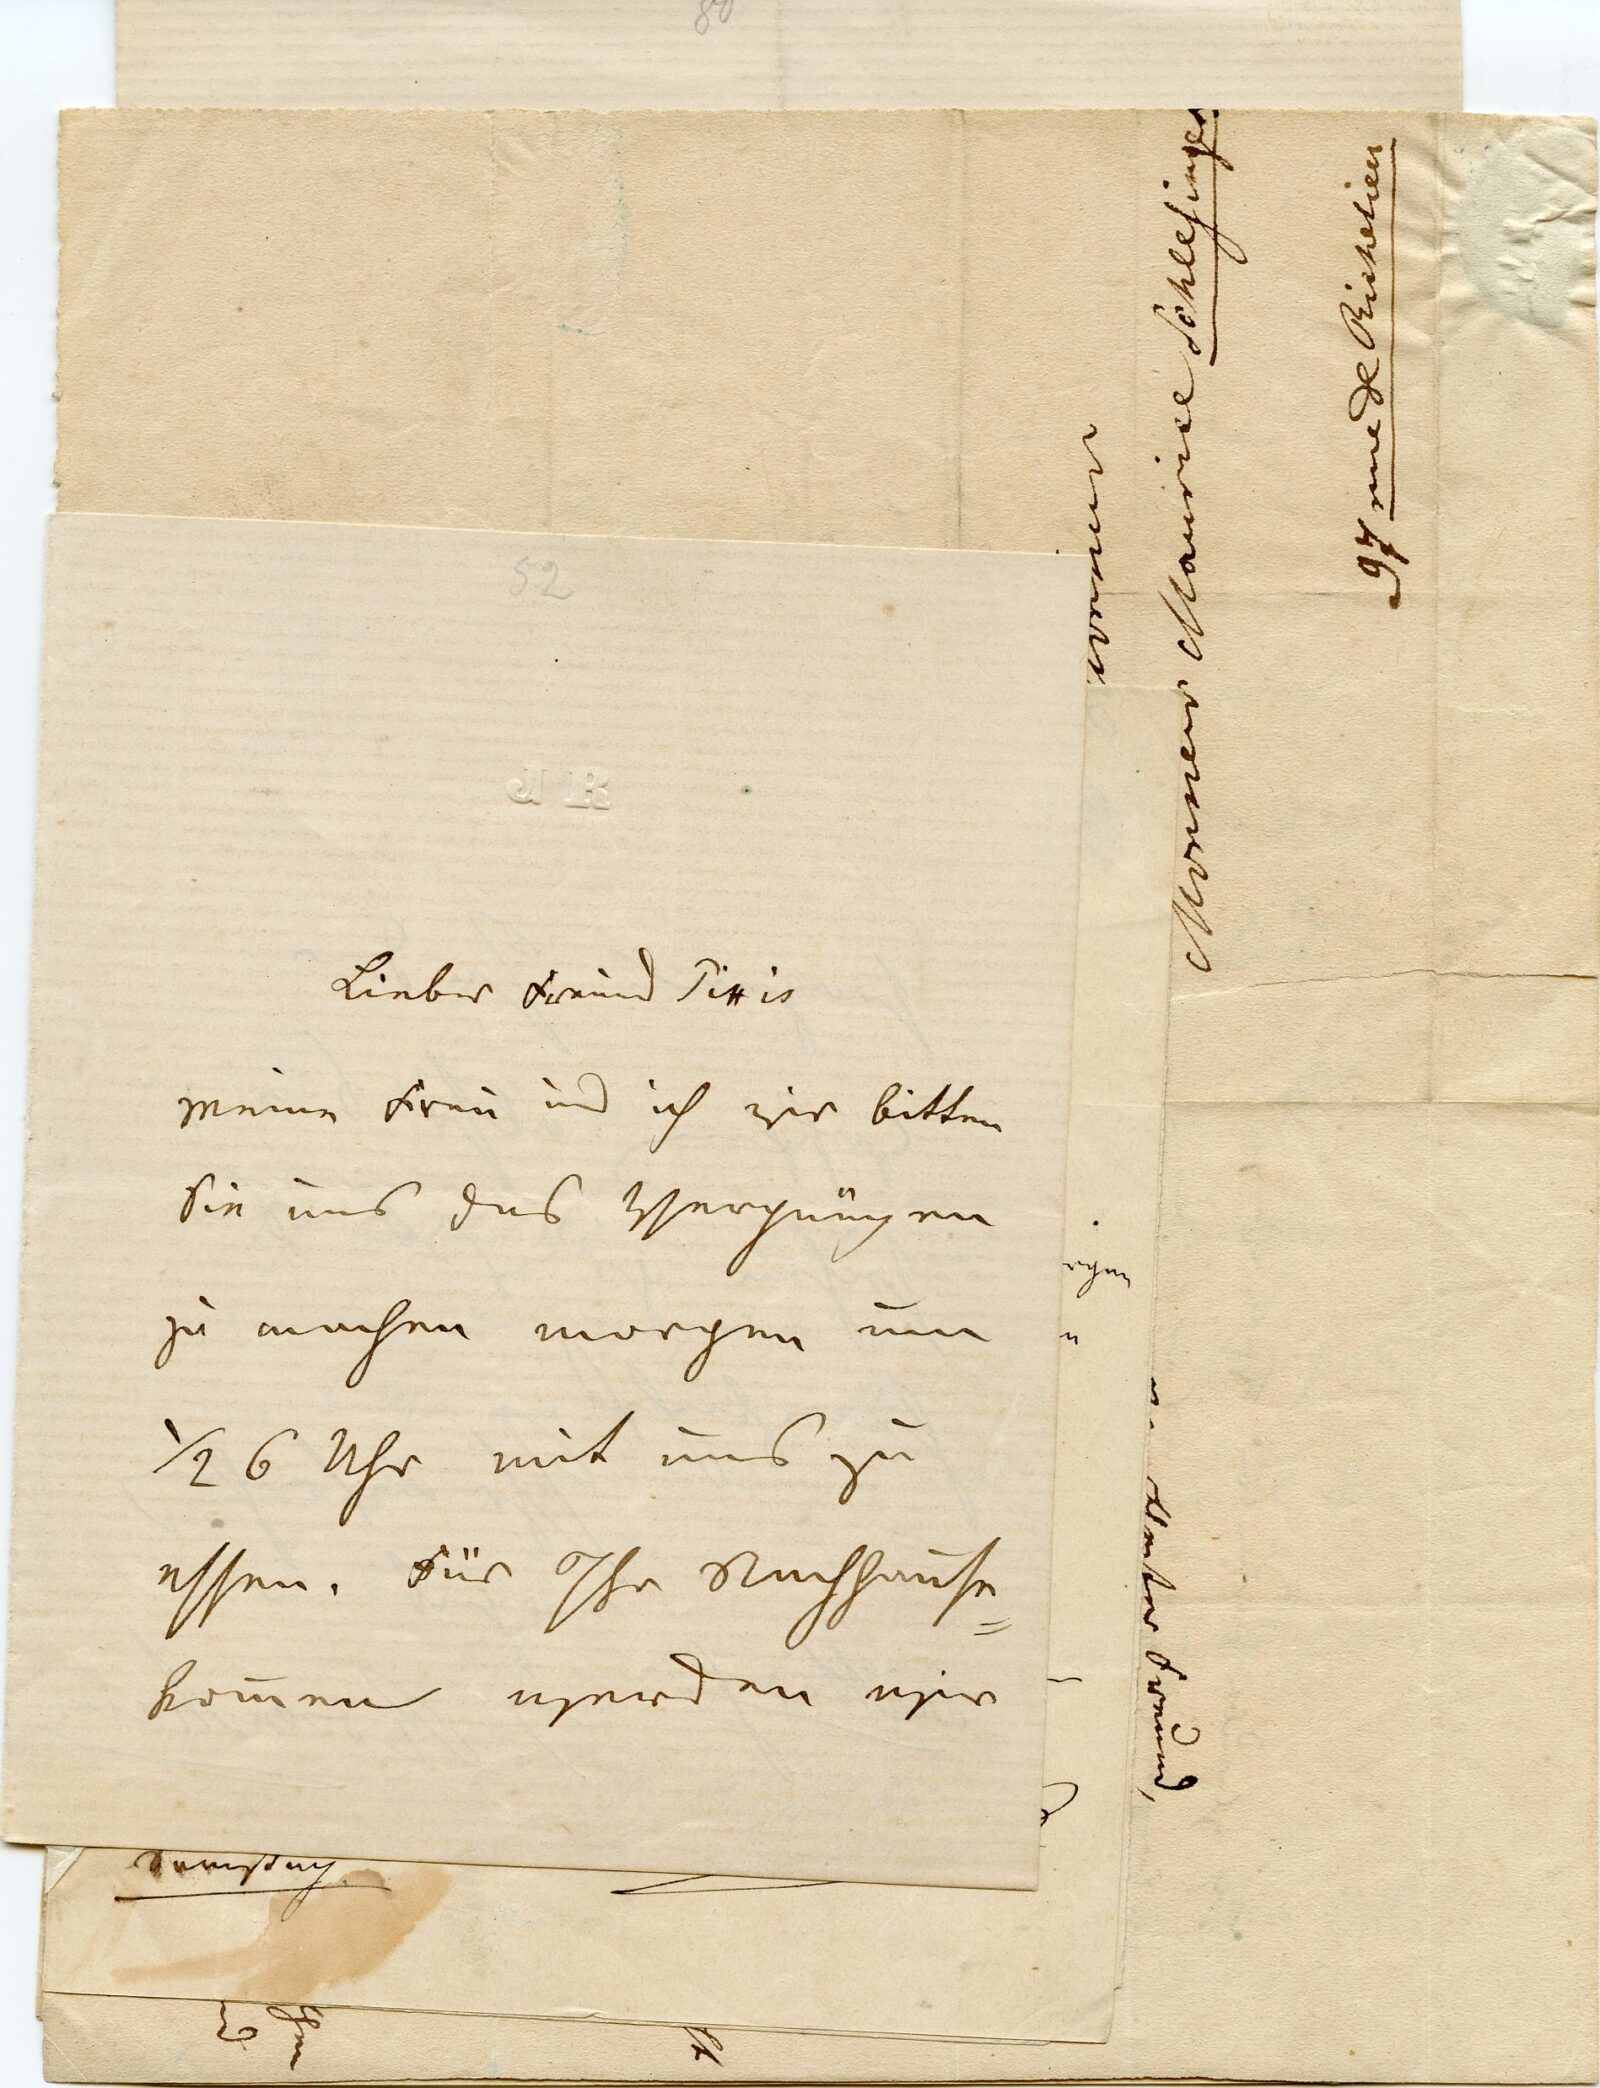 80
52
J R
Lieber Freund Pixis
meine Frau und ich wir bitten
Sie uns das Vergnügen
zu machen morgen um
1/2 6 Uhr mit uns zu
essen. Für Ihr Nachhause=
kom̅en werden wir
Monsieur Maurice Schlesinger
97 rue de Richelieu
Freund,
Samstag